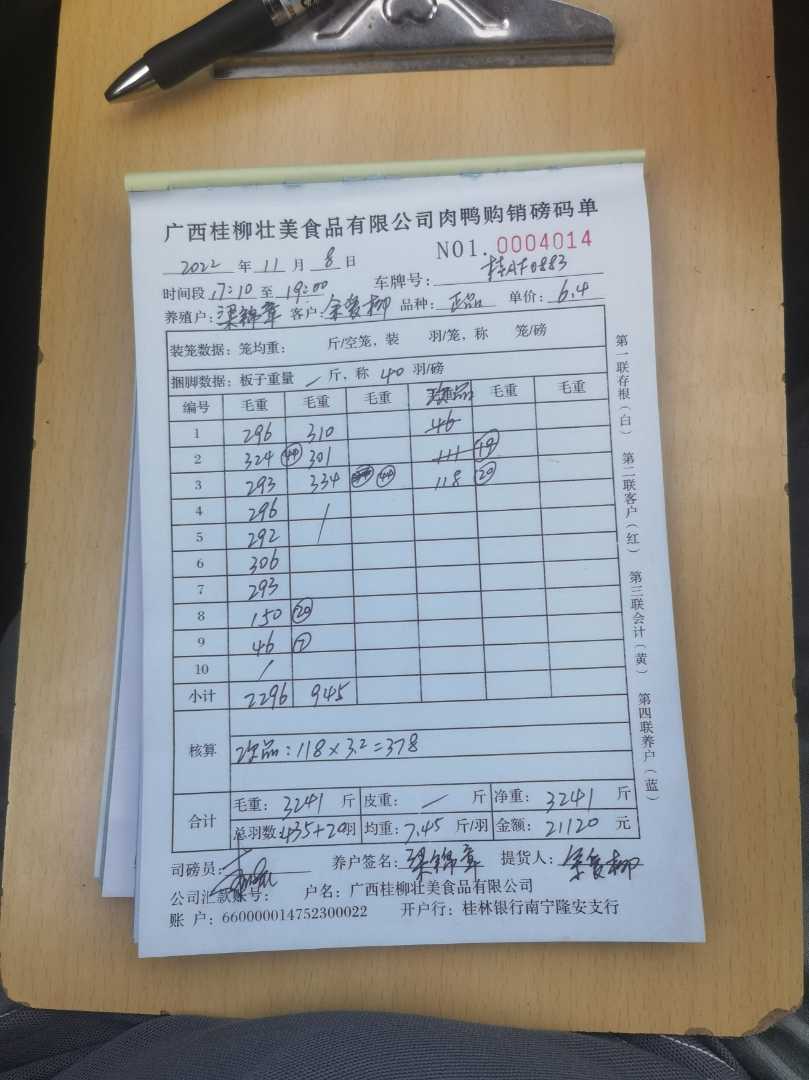 广西桂柳壮美食品有限公司肉鸭购销磅码单
2022 年 11 月 8 日 NO1. 0004014
时间段 17:10 至 19:00 车牌号: 桂AF0883
养殖户: 梁锦章 客户: 余爱柳 品种: 正品 单价: 6.4
装笼数据: 笼均重: 斤/空笼, 装 羽/笼, 称 笼/磅
捆脚数据: 板子重量 / 斤, 称 40 羽/磅
编号 毛重 毛重 毛重 次品 毛重 毛重
1 296 310 46
2 324 44 301 111 19
3 293 334 44 118 20
4 296 /
5 292
6 306
7 293
8 150 20
9 46 7
10 /
小计 2296 945
核算 次品: 118 × 3.2 = 378
合计 毛重: 3241 斤 皮重: / 斤 净重: 3241 斤
总羽数: 435+20 羽 均重: 7.45 斤/羽 金额: 21120 元
司磅员: 养户签名: 梁锦章 提货人: 余爱柳
公司汇款账号: 户名: 广西桂柳壮美食品有限公司
账 户: 660000014752300022 开户行: 桂林银行南宁隆安支行
第一联存根(白) 第二联客户(红) 第三联会计(黄) 第四联养户(蓝)